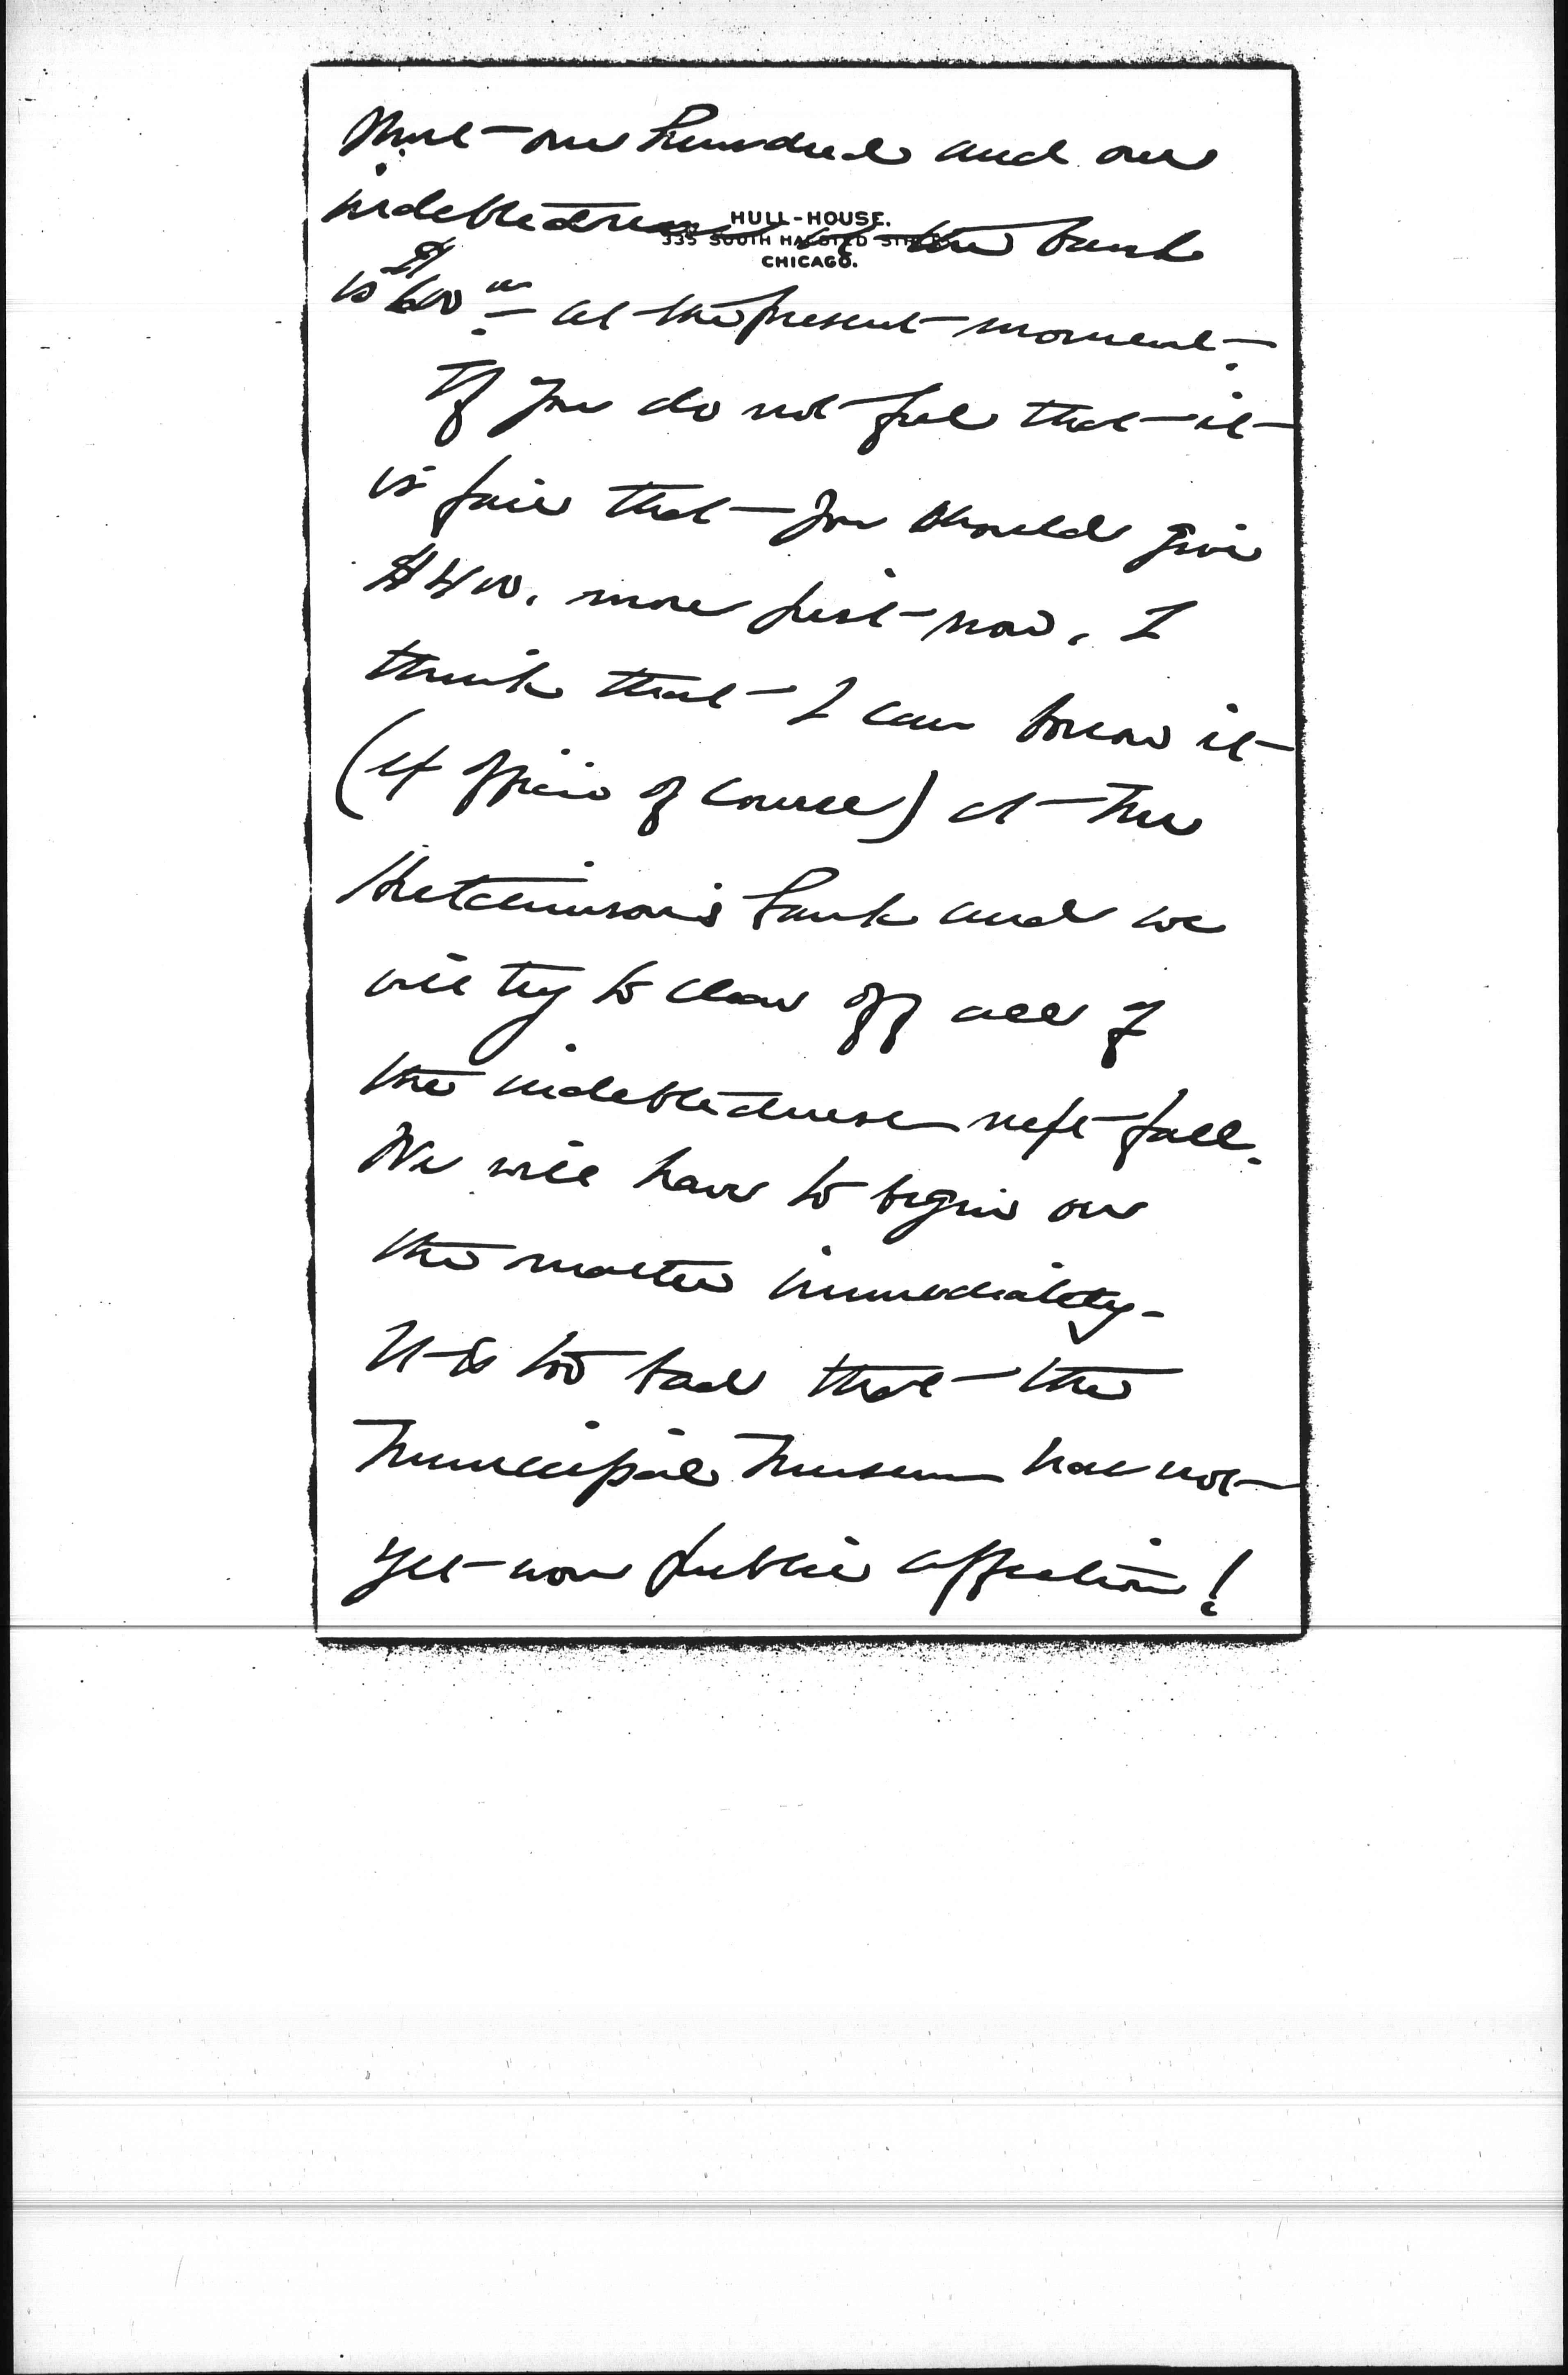 one hundred and our
HULL-HOUSE.
335 SOUTH HALSTED STREET
CHICAGO.
indebtedness at the bank
is $600.00 at the present moment.
If you do not feel that it
is fair that you should give
$400. more just now, I
think that I can borrow it
(ex officio of course) at the
Hutchinson's bank and we
will try to clear off all of
the indebtedness next fall.
We will have to begin on
the matter immediately.
It is too bad that the
Municipal Museum has not
yet won public affection!